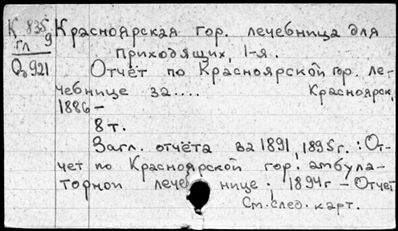 К 835
9
Гл
Оз 921
Красноярская гор. лечебница для
приходящих, 1-я.
Отчёт по Красноярской гор. ле-
чебнице за.... Красноярск,
1886 –
8 т.
Загл. отчёта за 1891, 1895 г. : От-
чет по Красноярской гор. амбула-
торной лечебнице ; 1894 г – Отчет
См. след. карт.